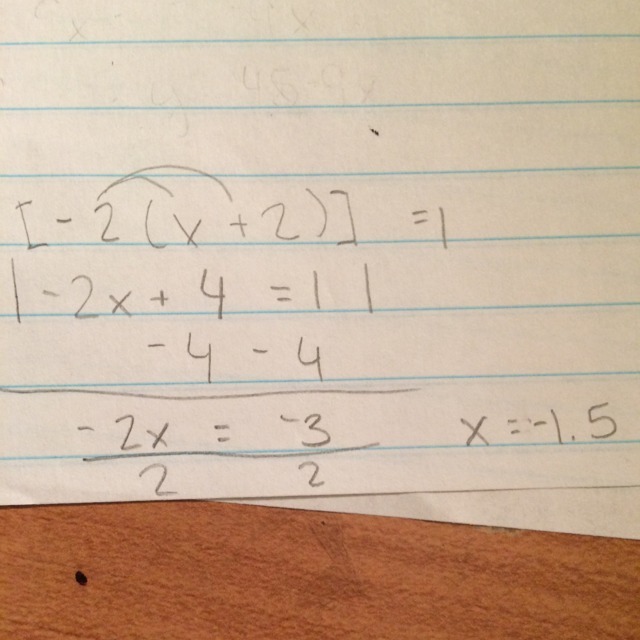 [-2(x+2)] =1
|-2x+4 =1|
-4 -4
-2x = -3 x=-1.5
2 2